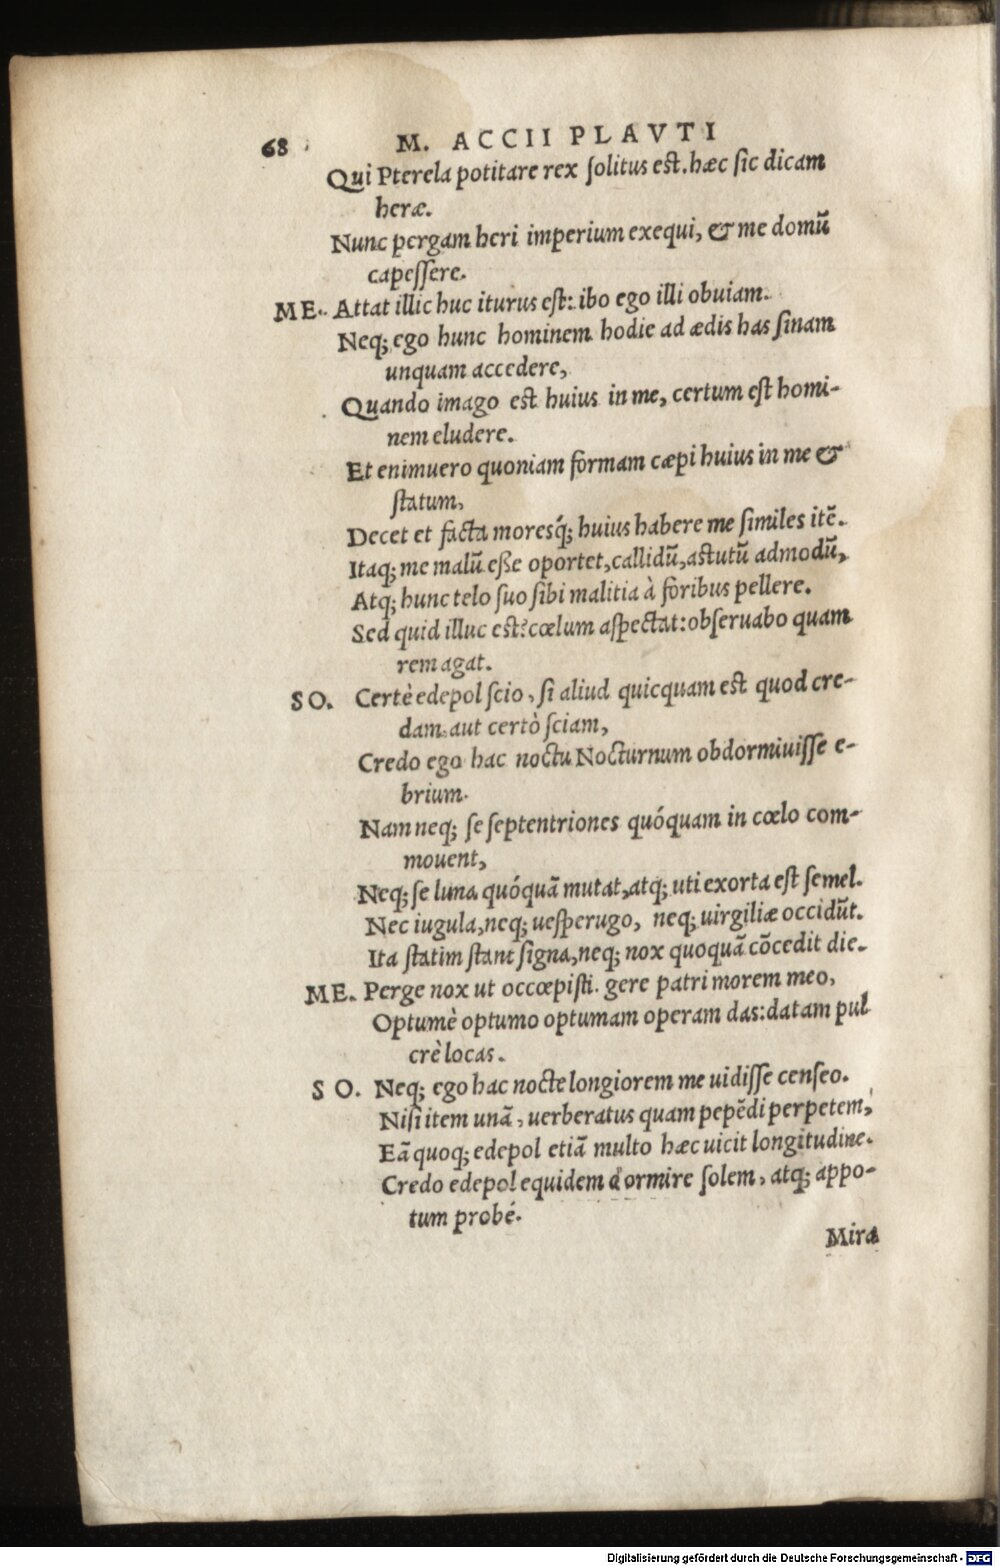 68 M. ACCII PLAVTI
Qui Pterela potitare rex ſolitus eſt. hæc ſic dicam
heræ.
Nunc pergam heri imperium exequi, & me domū
capeſſere.
ME. Attat illic huc iturus eſt: ibo ego illi obuiam.
Neq; ego hunc hominem hodie ad ædis has ſinam
unquam accedere,
Quando imago eſt huius in me, certum eſt homi-
nem eludere.
Et enimuero quoniam formam cæpi huius in me &
ſtatum,
Decet et facta moresq́; huius habere me ſimiles itē.
Itaq; me malū eße oportet, callidū, astutū admodū,
Atq; hunc telo ſuo ſibi malitia à foribus pellere.
Sed quid illuc est? cœlum aſpectat: obſeruabo quam
rem agat.
SO. Certè edepol ſcio, ſi aliud quicquam est quod cre-
dam, aut certò ſciam,
Credo ego hac noctu Nocturnum obdormiuiſſe e-
brium.
Nam neq; ſe ſeptentriones quóquam in cœlo com-
mouent,
Neq; ſe luna quóquā mutat, atq; uti exorta eſt ſemel.
Nec iugula, neq; ueſperugo, neq; uirgiliæ occidūt.
Ita ſtatim ſtant ſigna, neq; nox quoquā cōcedit die.
ME. Perge nox ut occœpiſti. gere patri morem meo,
Optumè optumo optumam operam das: datam pul
crè locas.
SO. Neq; ego hac nocte longiorem me uidiſſe cenſeo.
Niſi item unā, uerberatus quam pepēdi perpetem,
Eā quoq; edepol etiā multo hæc uicit longitudine.
Credo edepol equidem dormire ſolem, atq; appo-
tum probé.
Mira
Digitalisierung gefördert durch die Deutsche Forschungsgemeinschaft - DFG